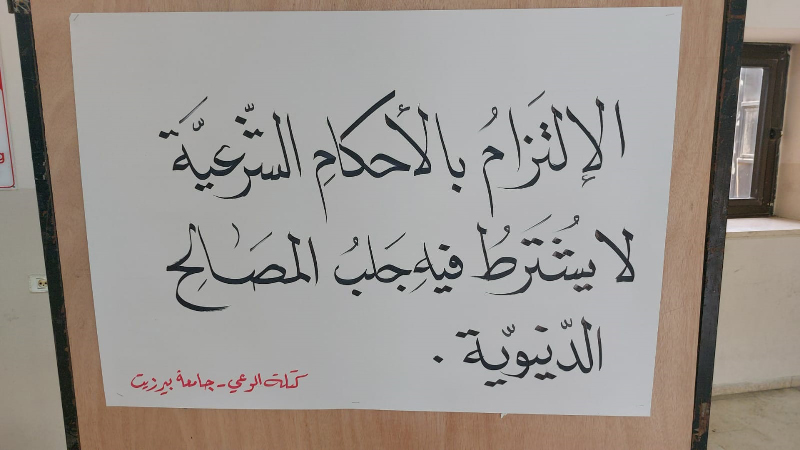 الإلتَزامُ بالأحكامِ الشّرعيَّة
لا يُشتَرطُ فيهِ جَلبُ المصَالحِ
الدّنيويّة .
كتلة الوعي - جامعة بيرزيت